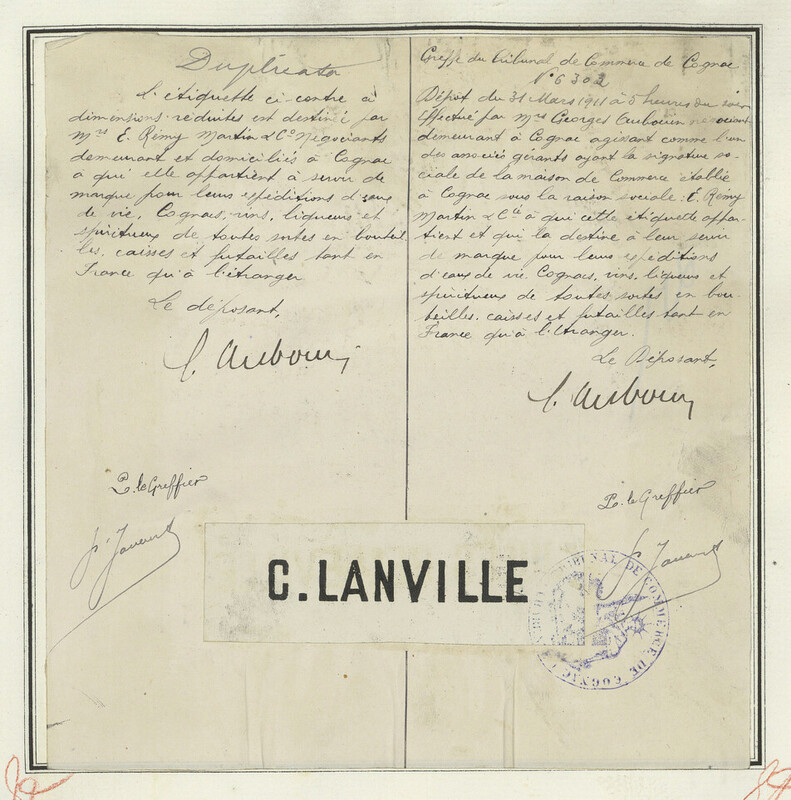 Duplicata
L'étiquette ci-contre à
dimensions réduites est destinée par
Mrs E. Rémy Martin & Co Négociants
demeurant et domiciliés à Cognac
à qui elle appartient à servir de
marque pour leurs expéditions d'eaux
de vie, Cognacs, vins, liqueurs et
spiritueux de toutes sortes en bouteil
les, caisses et futailles tant en
France qu'à l'étranger
Le déposant,
G. Aubouin
P. le Greffier
Greffe du Tribunal de Commerce de Cognac
N° 6302
Dépôt du 31 Mars 1911 à 5 heures du soir
Effectué par Mrs Georges Aubouin négociant
demeurant à Cognac agissant comme l'un
des associés gérants ayant la signature so-
ciale de la maison de Commerce établie
à Cognac sous la raison sociale: E. Rémy
Martin & Cie à qui cette étiquette appar-
tient et qui la destine à leur servir
de marque pour leurs expéditions
d'eaux de vie Cognacs, vins, liqueurs et
spiritueux de toutes sortes en bou-
teilles, caisses et futailles tant en
France qu'à l'Etranger.
Le Déposant,
G. Aubouin
P. le Greffier
C. LANVILLE
TRIBUNAL DE COMMERCE DE COGNAC